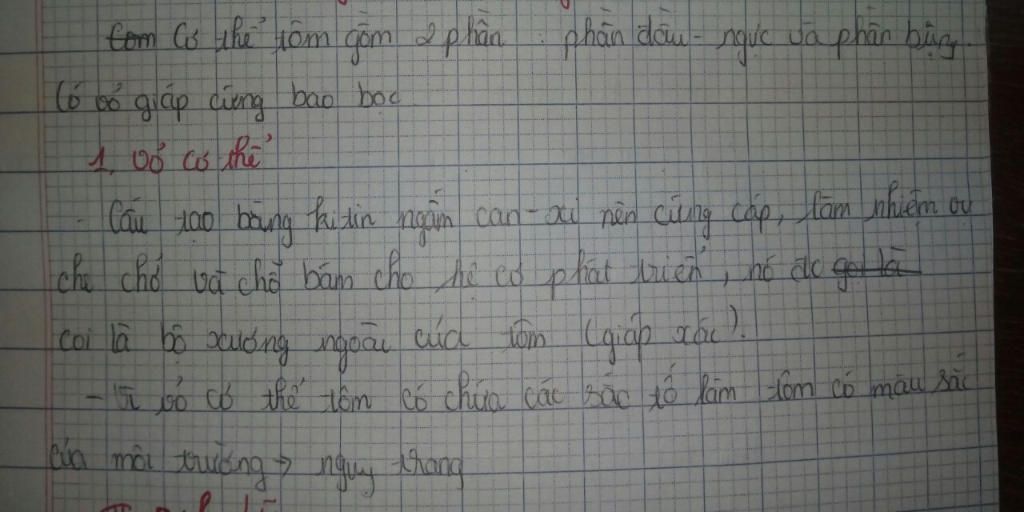 Cơ thể tôm gồm 2 phần : phần đầu - ngực và phần bụng.
Có vỏ giáp cứng bao bọc
1, Vỏ cơ thể
- Cấu tạo bằng kitin ngấm can-xi nên cứng cáp, làm nhiệm vụ
che chở và chỗ bám cho hệ cơ phát triển, nó đc gọi là
coi là bộ xương ngoài của tôm (giáp xác).
- vỏ cơ thể tôm có chứa các sắc tố làm tôm có màu sắc
của môi trường → nguỵ trang